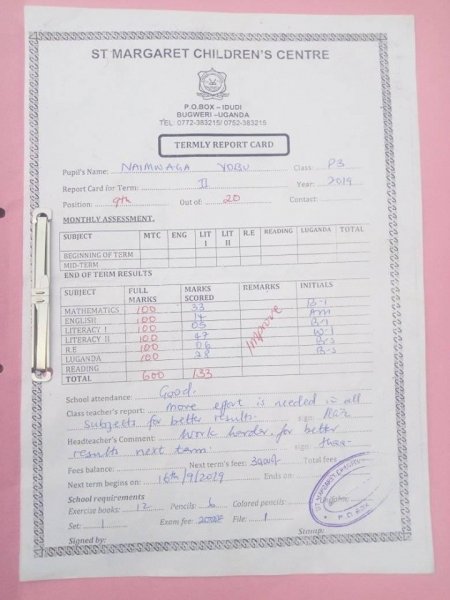 ST MARGARET CHILDREN'S CENTRE
P.O.BOX – IDUDI
BUGWERI –UGANDA
TEL: 0772-383215/ 0752-383215
TERMLY REPORT CARD
Pupil's Name: NAIMWAGA YOBU Class: P3
Report Card for Term: II Year: 2019
Position: 9th Out of: 20 Contact:
MONTHLY ASSESSMENT.
SUBJECT MTC ENG LIT I LIT II R.E READING LUGANDA TOTAL
BEGINNING OF TERM
MID-TERM
END OF TERM RESULTS
SUBJECT FULL MARKS MARKS SCORED REMARKS INITIALS
MATHEMATICS 100 33 B-1
ENGLISH 100 14 Am
LITERACY I 100 05 B-1
LITERACY II 100 47 W-1
R.E 100 06 B-s
LUGANDA 100 28 B-s
READING
Improve
TOTAL 600 133
School attendance: Good.
Class teacher's report: more effort is needed in all
subjects for better results. sign:
Headteacher's Comment: Work harder for better
results next term. sign:
Fees balance: Next term's fees: Total fees
Next term begins on: 16th/9/2019 Ends on
School requirements
Exercise books: 12 Pencils: 6 Colored pencils:
Set: 1 Exam fee: File: 1 Stamp:
Signed by:
ST MARGARET CHILDREN'S
P.O.BOX